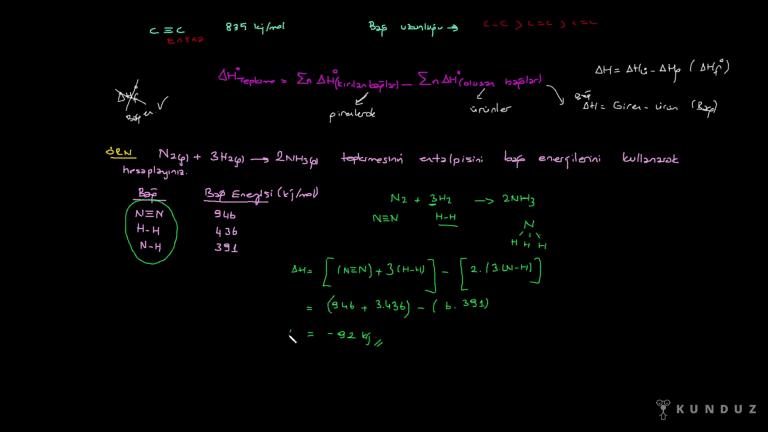 C≡C 835 kj/mol Bağ uzunluğu → C-C > C=C > C≡C
ΔH°Tepkime = Σn ΔH°(kırılan bağlar) - Σn ΔH°(oluşan bağlar)
ΔH = ΔHü - ΔHg (ΔHf°)
girenlerde ürünler
ΔH = Giren - ürün (Bağ)
ÖRN N2(g) + 3H2(g) → 2NH3(g) tepkimesinin entalpisini bağ enerjilerini kullanarak
hesaplayınız.
Bağ Bağ Enerjisi (kj/mol)
N≡N 946
H-H 436
N-H 391
N2 + 3H2 → 2NH3
N≡N H-H
N
H H H
ΔH = [(N≡N) + 3(H-H)] - [2.(3(N-H)]
= (946 + 3.436) - (6.391)
= -92 kj
KUNDUZ